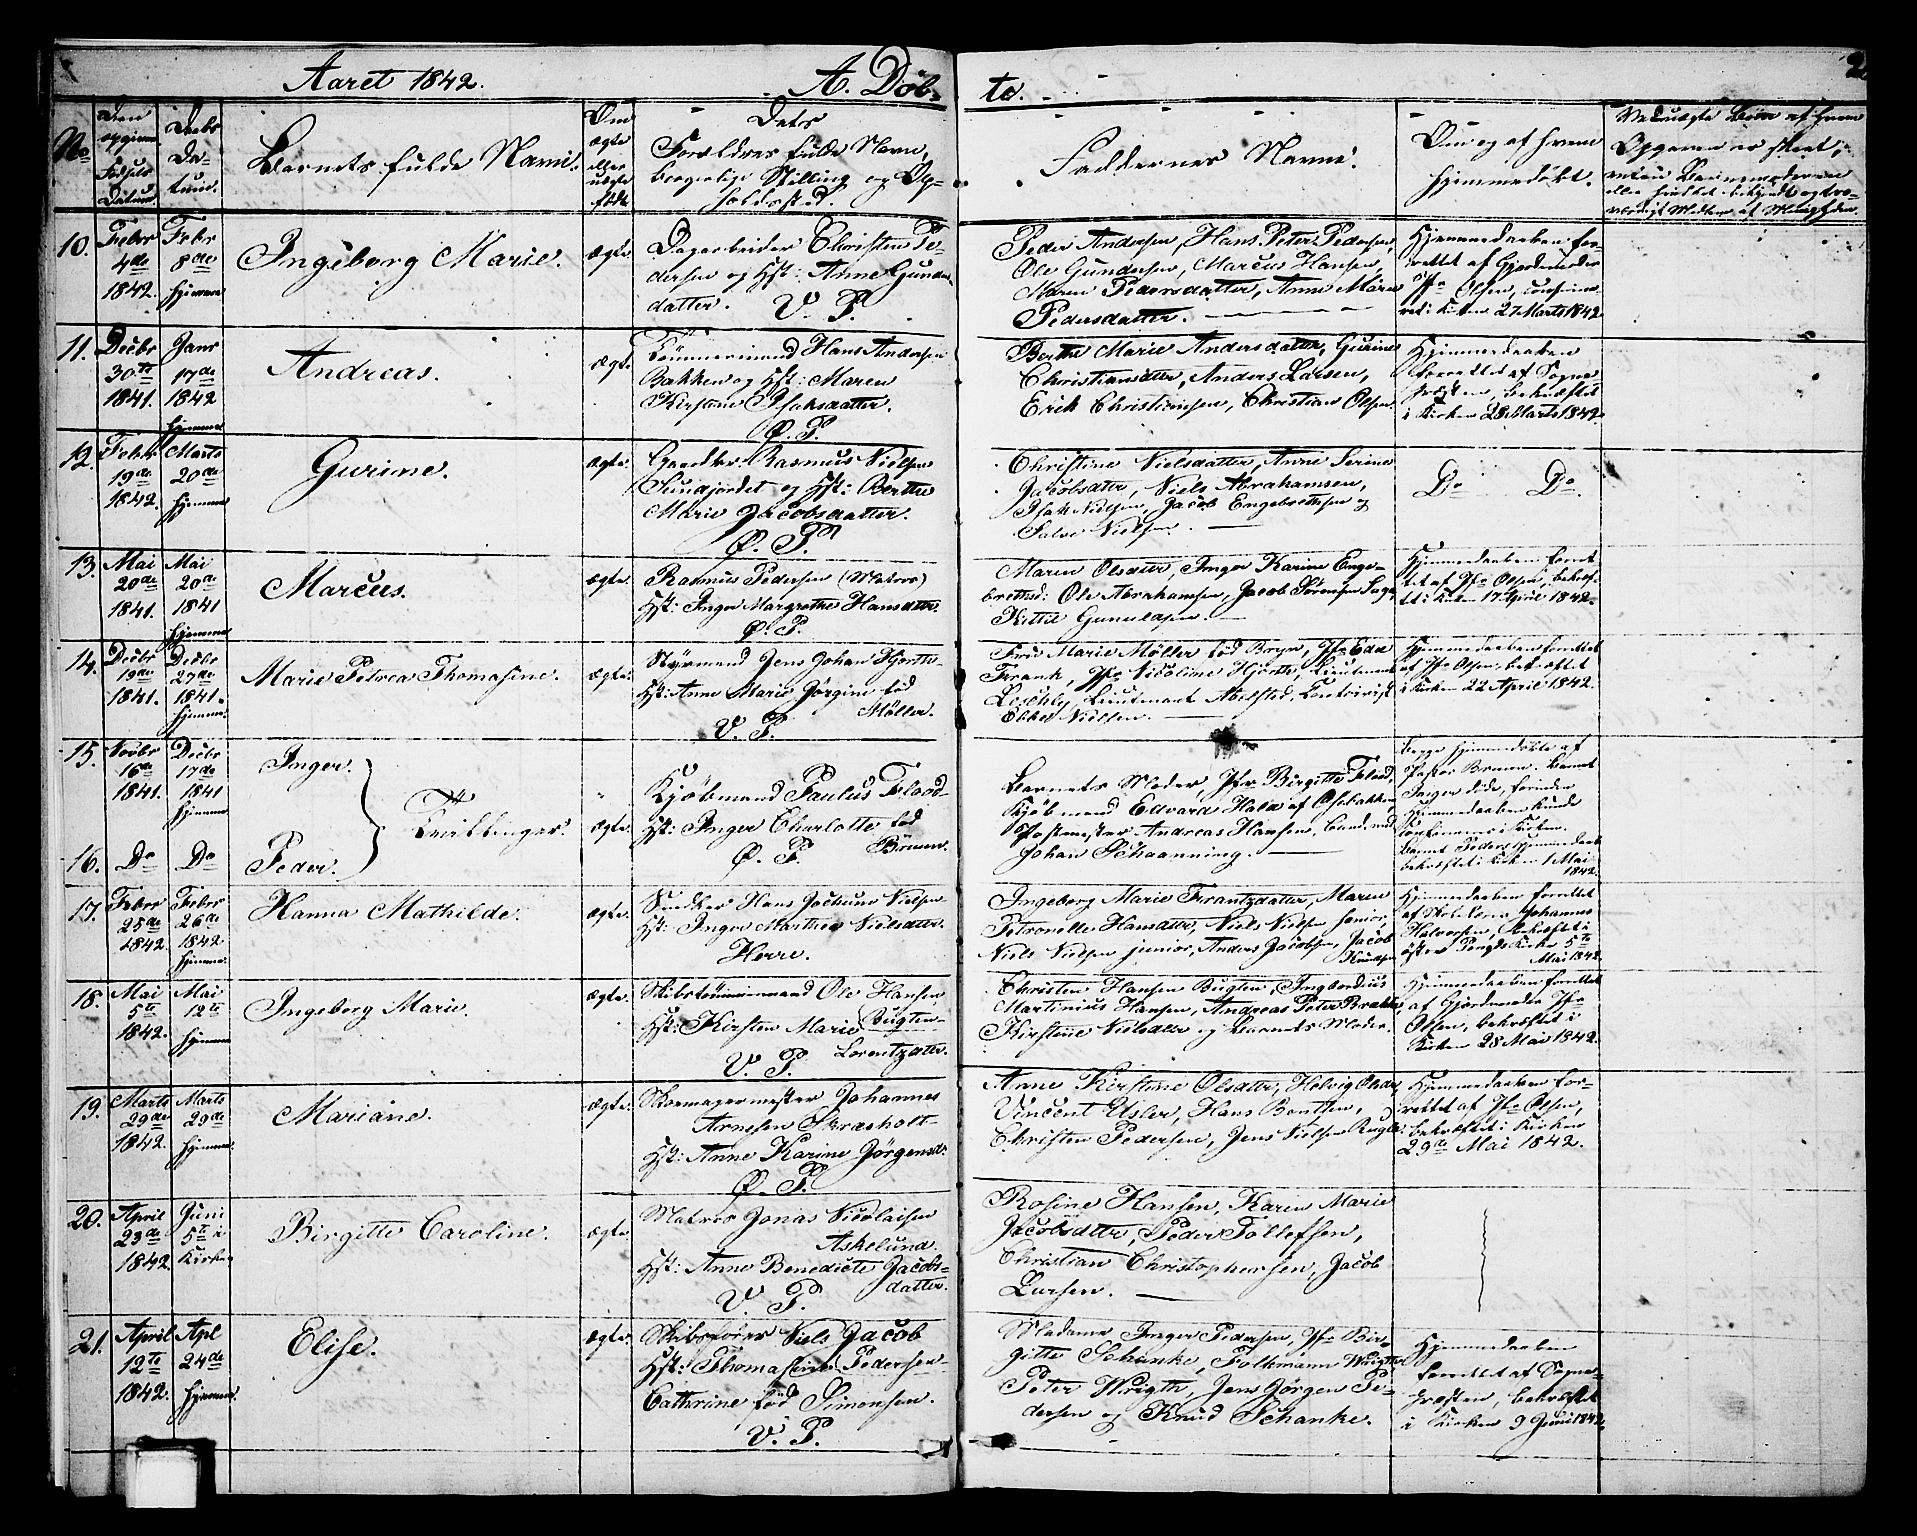 Aaret 1842.
A. Døb-
te.
No
Den opgivne Fødsels Datum.
Daabs Datum.
Barnets fulde Navn.
Om ægte eller uægte født.
Dets Forældres fulde Navn, borgerlige Stilling og Opholdssted.
Faddernes Navne.
Om og af hvem hjemmedøbt.
Ved uægte Børn af hvem Opgaven er skeet;
10.
Febr 4de 1842.
Febr 8de hjemme
Ingeborg Marie.
ægte.
Dagarbeider Christen Pe-
dersen og Hst: Anne Gunders-
datter. V. P.
Peder Andersen, Hans Peter Pedersen,
Ole Gundersen, Marcus Hansen,
Maren Pedersdatter, Anne Marie
Pedersdatter.
Hjemmedaaben for-
rettet af Gjordemoder
Jfr Olsen,
i Kirken 27 Marts 1842.
11.
Decbr 30te 1841.
Janr 17de 1842 hjemme
Andreas.
ægte.
Tømmermand Hans Andersen
Bakken og Hst: Maren
Kirstine Isaksdatter.
Ø. P.
Berthe Marie Andersdatter, Gurine
Christiansdtter, Anders Larsen,
Erich Christiansen, Christian Olsen.
Hjemmedaaben
forrettet af Sogne-
præsten, bekræftet
i Kirken 28 Marts 1842.
12.
Febr 19de 1842.
Marts 20de hjemme
Gurine.
ægte.
Gaardbr. Rasmus Nielsen
Sundjordet og Hst: Berthe
Marie Jacobsdatter.
Ø. P.
Christine Nielsdatter, Anne Serine
Jacobsdtter, Niels Abrahamsen,
Isak Nielsen, Jacob Engebrethsen og
Salve Nielsen.
Do Do.
13.
Mai 20de 1841.
Mai 20de 1841 hjemme
Marcus.
ægte.
Rasmus Pedersen (Matros)
Hst: Inger Margrethe Hansdttr.
Ø. P.
Maren Olsdatter, Inger Karine Enge-
brettsd: Ole Abrahamsen, Jacob Sørensen
Kittil
Hjemmedaaben forret-
tet af Jfr Olsen, bekræf-
tet i Kirken 17 April 1842.
14.
Decbr 19de 1841.
Decbr 27de 1841. hjemme.
Marie Petrea Thomasine.
ægte.
Styrmand Jens Johan Hjorth.
Hst: Anne Marie Jørgine fød
Møller.
V. P.
Frue Marie Møller fød Bryn, Jfr Eda
Frank, Jfr Nicoline Hjorth, Lieutenant
Leschly, Lieutenant Abelsted,
Ebbe Nielsen.
Hjemmedaaben forrettet
af Jfr Olsen, bekræftet
i Kirken 22 April 1842.
15.
Novbr 16de 1841.
Decbr 17de 1841 hjemme.
Inger.
Tvillinger.
16.
Do
Do
Peder.
ægte.
Kjøbmand Paulus Flood
Hst: Inger Charlotte fød
Bruun.
Ø. P.
Barnets Moder, Jfr Birgitte Flood,
Kjøbmand Edvard Holm af Osebakken,
Postmester Andreas Hansen, Cand.
Johan Schaanning.
Begge hjemmedøbte af
Pastor Bruun. Barnet
Inger døde, forinden
Hjemmedaaben kunde
confirmeres i Kirken.
Barnet Peders Hjemmedaab
bekræftet i Kirken 1 Mai
1842.
17.
Febr 25de 1842.
Febr 26de 1842 hjemme.
Hanna Mathilde.
ægte.
Snedker Hans Jochum Nielsen
Hst: Inger Marthea Nielsdttr.
Herre.
Ingeborg Marie Frantzdatter, Maren
Petronelle Hansdtter, Niels Nielsen senior,
Niels Nielsen junior, Anders Jacobsen, Jacob
Knudsen
Hjemmedaaben forrettet
af Skolelærer Johannes
Halvorsen, bekræftet i
Kirke 5te
Mai 1842.
18.
Mai 5te 1842.
Mai 12te hjemme
Ingeborg Marie.
ægte.
Skibstømmermand Ole Hansen
Bugten
Hst: Kirsten Marie
Lorentzdttr.
V. P.
Christen Hansen Bugten,
Martinius Hansen, Andreas Peter
Kirstine Nielsdttr og Barnets Moder.
Hjemmedaaben forrettet
af Gjordemoder Jfr
Olsen, bekræftet i
Kirken 28 Mai 1842.
19.
Marts 29de 1842.
Marts 29de hjemme.
Mariane.
ægte.
Skomagermester Johannes
Arnesen Skrasholt
Hst: Anne Karine Jørgensd.
Ø. P.
Anne Kirstine Olsdttr, Helvig Olsdtr,
Vincent Usler, Hans Bentsen,
Christen Pedersen, Jens Nielsen
Hjemmedaaben for-
rettet af Jfr Olsen,
bekræftet i Kirken
29de Mai 1842.
20.
April 23de 1842
Juni 5te i Kirken
Birgitte Caroline.
ægte.
Matros Jonas Nicolaisen
Askelund.
Hst: Anne Benedicte Jacobs-
datter.
V. P.
Rosine Hansen, Karen Marie
Jacobsdtter, Peder Tollefsen,
Christian Christophersen, Jacob
Larsen.
21.
April 12te 1842.
Apl 24de hjemme.
Elise.
ægte.
Skibsfører Niels Jacob
Pedersen
Hst: Thomasine
Cathrine fød Simonsen.
V. P.
Madame Inger Pedersen, Jfr Bir-
gitte Schanke, Folkmann Wrigth
Peter Wrigth, Jens Jørgen Pe-
dersen og Knud Schanke.
Hjemmedaaben
forrettet af Sogne-
præsten, bekræftet
i Kirken 9 Juni 1842.